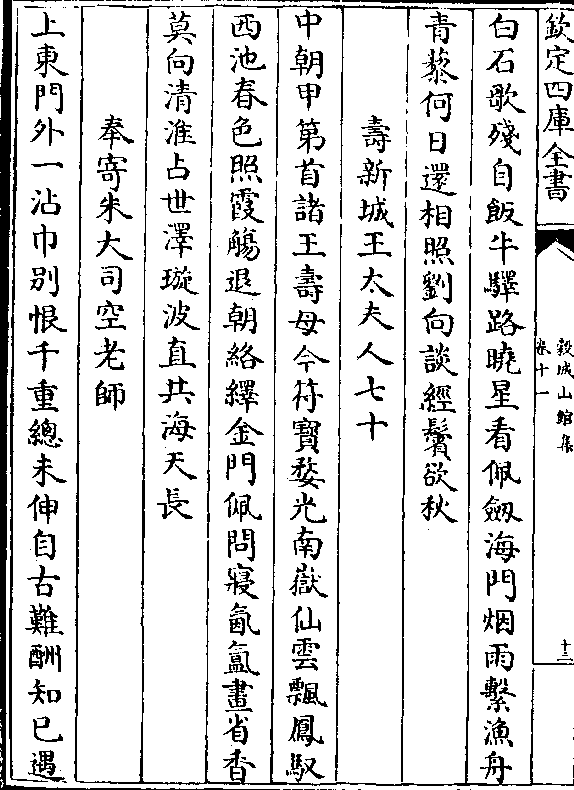 欽定四庫全書
穀城山館集
卷十一
十三
白石歌殘自飯牛驛路曉星看佩劔海門烟雨繫漁舟
青藜何日還相照劉向談經鬢欲秋
壽新城王太夫人七十
中朝甲第首諸王壽母今符寶婺光南嶽仙雲飄鳳馭
西池春色照霞觴退朝絡繹金門佩問寢氤氲畫省香
莫向清淮占世澤璇波直共海天長
奉寄朱大司空老師
上東門外一沾巾别恨千重總未伸自古難酬知已遇